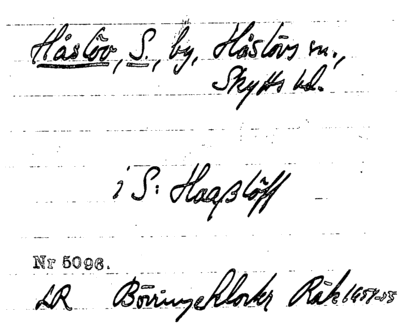 Håslöv, S., by, Håslövs sn.,
Skytts hd.
i S: Haaßlöff
Nr 5096.
LR Börringekloster Räk 1654-55